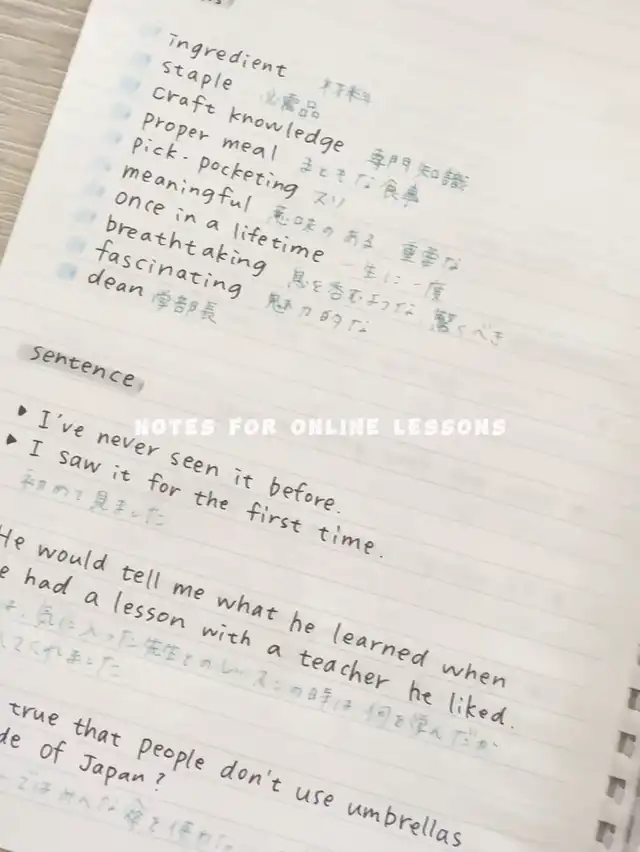 ingredient 材料
staple 必需品
craft knowledge 専門知識
proper meal まともな食事
pick-pocketing スリ
meaningful 意味のある 重要な
once in a lifetime 一生に一度
breathtaking 息を呑むような 驚くべき
fascinating 魅力的な
dean 学部長
sentence
NOTES FOR ONLINE LESSONS
▶ I've never seen it before.
▶ I saw it for the first time.
初めて見ました
He would tell me what he learned when
had a lesson with a teacher he liked.
気に入った先生とのレッスンの時は何を学んだか
てくれました
true that people don't use umbrellas
of Japan?